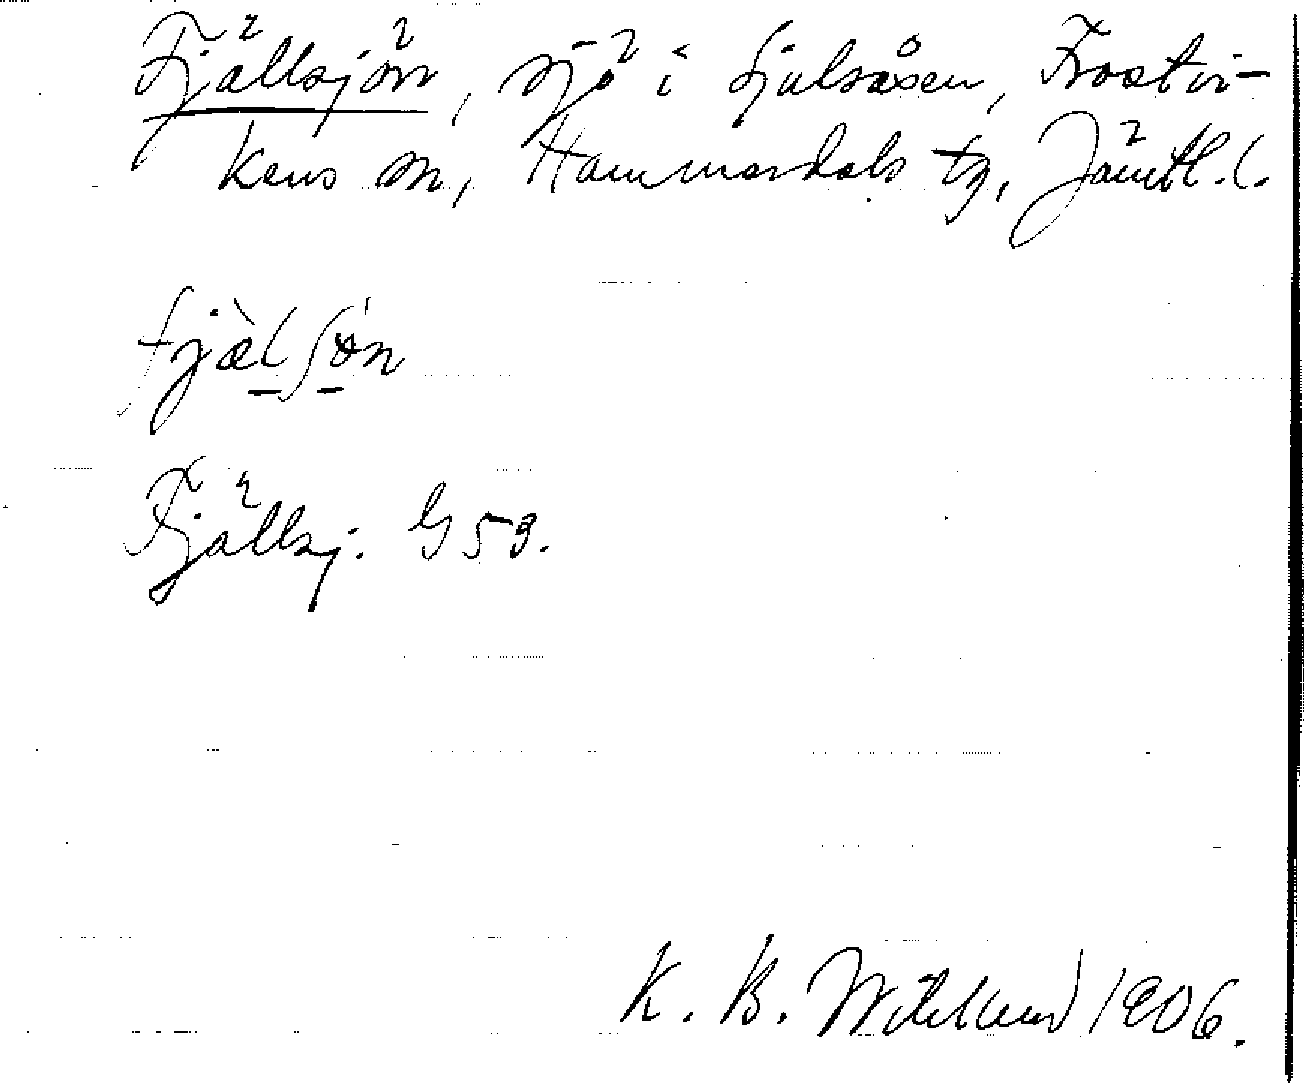 Fjällsjön, sjö i Sjulsåsen, Frostvi-
kens sn, Hammerdals tg, Jämtl. l.
fjæ̀lʃøn
Fjällsj. G 53.
K. B. Wiklund 1906.